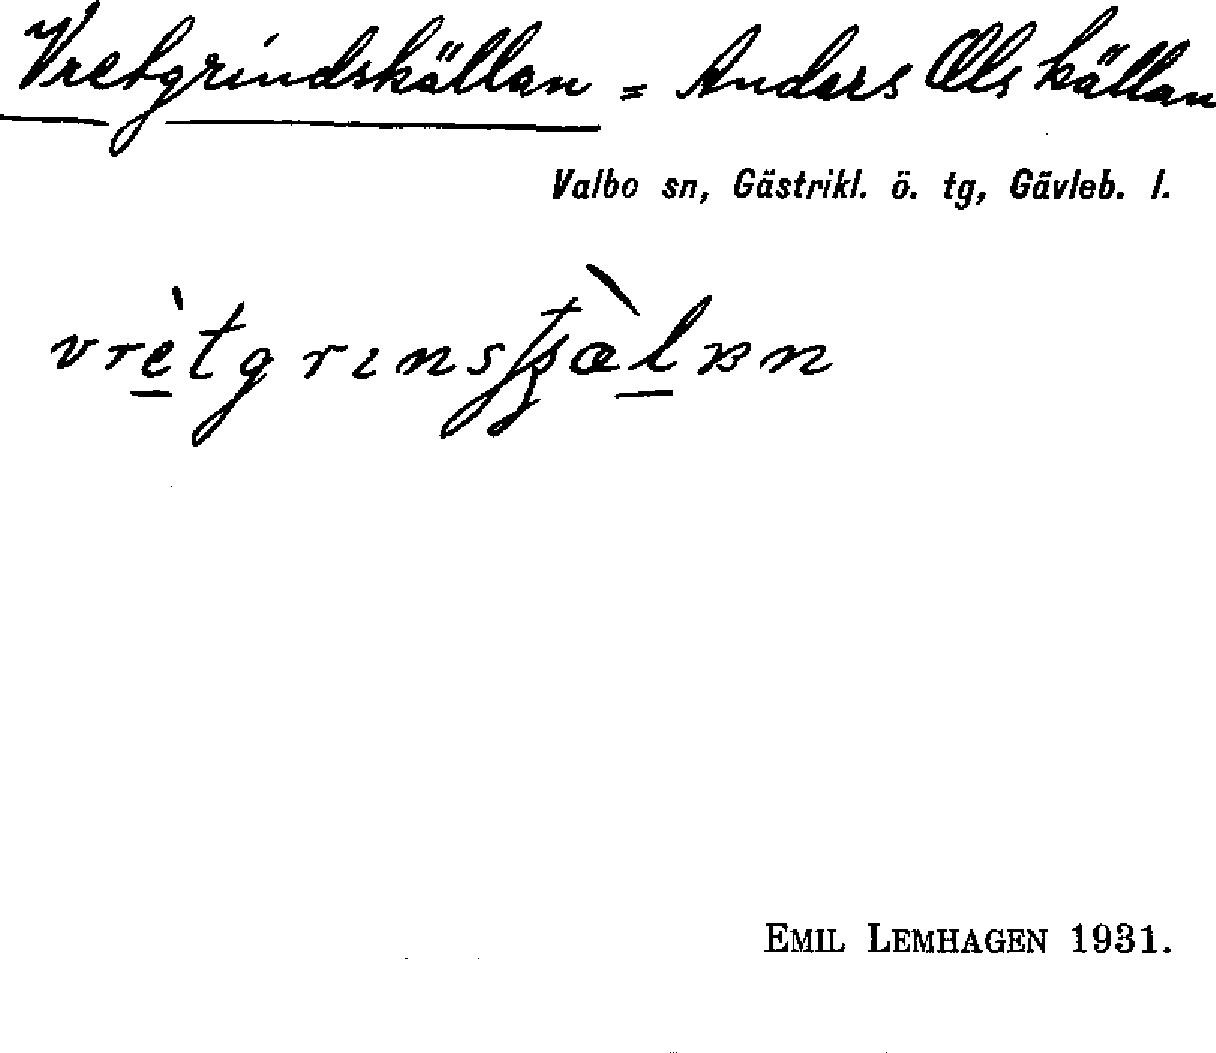 Vretgrindskällan = Anders Ols källan
Valbo sn, Gästrikl. ö. tg, Gävleb. l.
EMIL LEMHAGEN 1931.